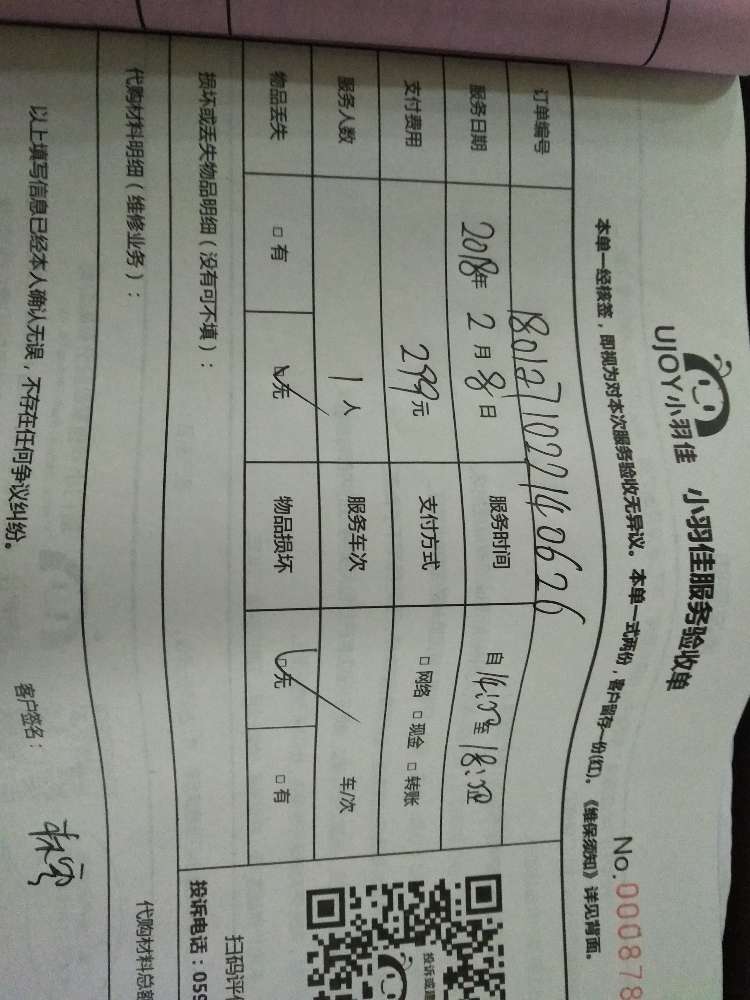 UJOY小羽佳 小羽佳服务验收单
No.000878
本单一经核签，即视为对本次服务验收无异议。本单一式两份，客户留存一份(红)。《维保须知》详见背面。
订单编号 1801271022140626
服务日期 2018年 2月 8日 服务时间 自14:00至18:00
支付费用 299元 支付方式 □ 网络 □ 现金 □ 转账
服务人数 1人 服务车次 车/次
物品丢失 □ 有 □ 无 物品损坏 □ 无 □ 有
损坏或丢失物品明细（没有可不填）：
投诉或建
扫码评
投诉电话：059
代购材料明细（维修业务）：
代购材料总
以上填写信息已经本人确认无误，不存在任何争议纠纷。
客户签名：